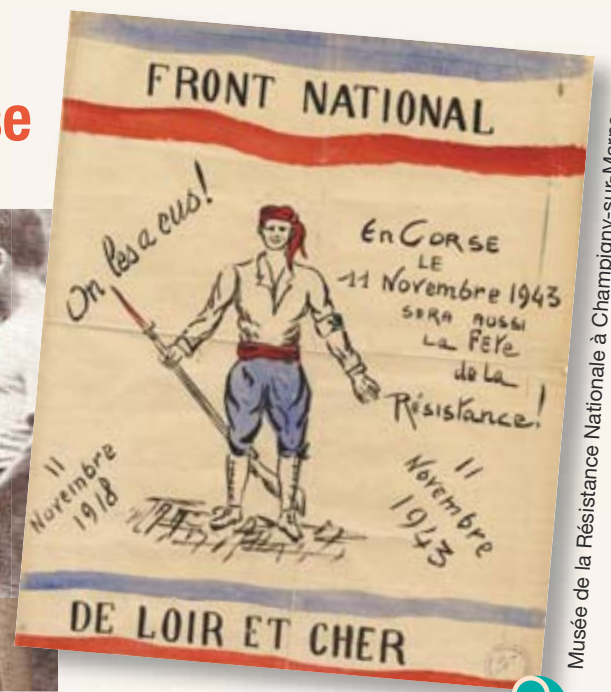 se
FRONT NATIONAL
On les a eus!
En CORSE
LE
11 Novembre 1943
SERA AUSSI
La FÊTE
de La
Résistance!
11
Novembre
1918
11
Novembre
1943
DE LOIR ET CHER
Musée de la Résistance Nationale à Champigny-sur-Marne